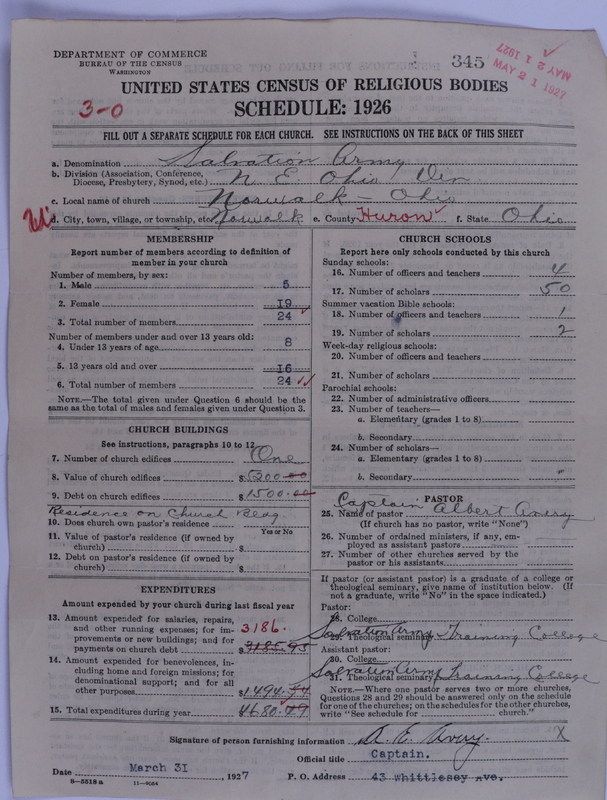 DEPARTMENT OF COMMERCE
BUREAU OF THE CENSUS
WASHINGTON
345
MAY 21 1927
MAY 21 1927
UNITED STATES CENSUS OF RELIGIOUS BODIES
3-0
SCHEDULE: 1926
FILL OUT A SEPARATE SCHEDULE FOR EACH CHURCH. SEE INSTRUCTIONS ON THE BACK OF THIS SHEET
a. Denomination Salvation Army
b. Division (Association, Conference, Diocese, Presbytery, Synod, etc.) N. E. Ohio Div
c. Local name of church Norwalk - Ohio
d. City, town, village, or township, etc. Norwalk e. County Huron f. State Ohio
MEMBERSHIP
Report number of members according to definition of
member in your church
Number of members, by sex:
1. Male 5
2. Female 19
3. Total number of members 24
Number of members under and over 13 years old:
4. Under 13 years of age 8
5. 13 years old and over 16
6. Total number of members 24
NOTE.—The total given under Question 6 should be
the same as the total of males and females given under Question 3.
CHURCH BUILDINGS
See instructions, paragraphs 10 to 12
7. Number of church edifices One
8. Value of church edifices $5200.00
9. Debt on church edifices $1500.00
Residence on Church Bldg
10. Does church own pastor's residence
Yes or No
11. Value of pastor's residence (if owned by
church) $
12. Debt on pastor's residence (if owned by
church) $
EXPENDITURES
Amount expended by your church during last fiscal year
13. Amount expended for salaries, repairs,
and other running expenses; for im- 3186.
provements or new buildings; and for
payments on church debt $3185.95
14. Amount expended for benevolences, in-
cluding home and foreign missions; for
denominational support; and for all
other purposes $1494.54
15. Total expenditures during year $4680.49
CHURCH SCHOOLS
Report here only schools conducted by this church
Sunday schools:
16. Number of officers and teachers 4
17. Number of scholars 50
Summer vacation Bible schools:
18. Number of officers and teachers 1
19. Number of scholars 2
Week-day religious schools:
20. Number of officers and teachers
21. Number of scholars
Parochial schools:
22. Number of administrative officers
23. Number of teachers—
a. Elementary (grades 1 to 8)
b. Secondary
24. Number of scholars—
a. Elementary (grades 1 to 8)
b. Secondary
PASTOR
25. Name of pastor Captain Albert Avery
(If church has no pastor, write "None")
26. Number of ordained ministers, if any, em-
ployed as assistant pastors
27. Number of other churches served by the
pastor or his assistants
If pastor (or assistant pastor) is a graduate of a college or
theological seminary, give name of institution below. (If
not a graduate, write "No" in the space indicated.)
Pastor:
28. College
29. Theological seminary Salvation Army Training College
Assistant pastor:
30. College
31. Theological seminary Salvation Army Training College
NOTE.—Where one pastor serves two or more churches,
Questions 28 and 29 should be answered only on the schedule
for one of the churches; on the schedules for the other churches,
write "See schedule for church."
Signature of person furnishing information A. E. Avery. X
Official title Captain.
Date March 31, 1927 P. O. Address 43 Whittlesey Ave.
8—5518 a 11—9064